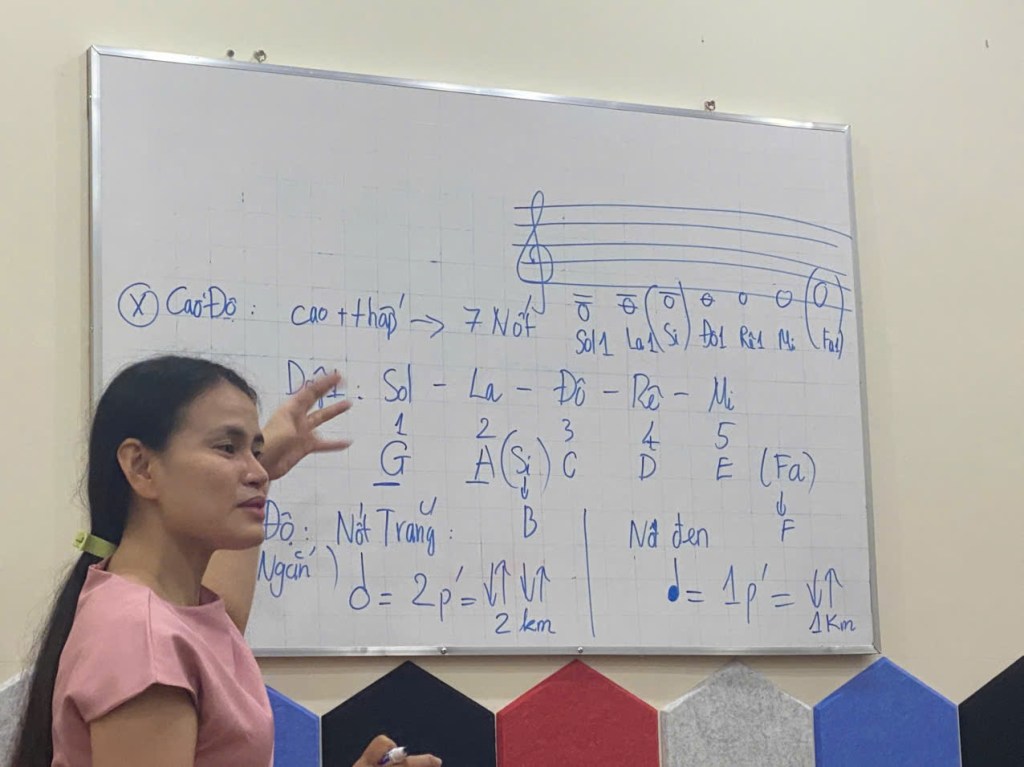 (X) Cao Độ : cao + thấp → 7 Nốt
Sol1 La1 (Si) Đô1 Rê1 Mi (Fa1)
: Sol - La - Đô - Rê - Mi
1 2 3 4 5
G A (Si) C D E (Fa)
↓ B ↓ F
Độ : Nốt Trắng : Nốt đen
Ngắn ) = 2p' = ↓↑ ↓↑ = 1p' = ↓↑
2 km 1 Km